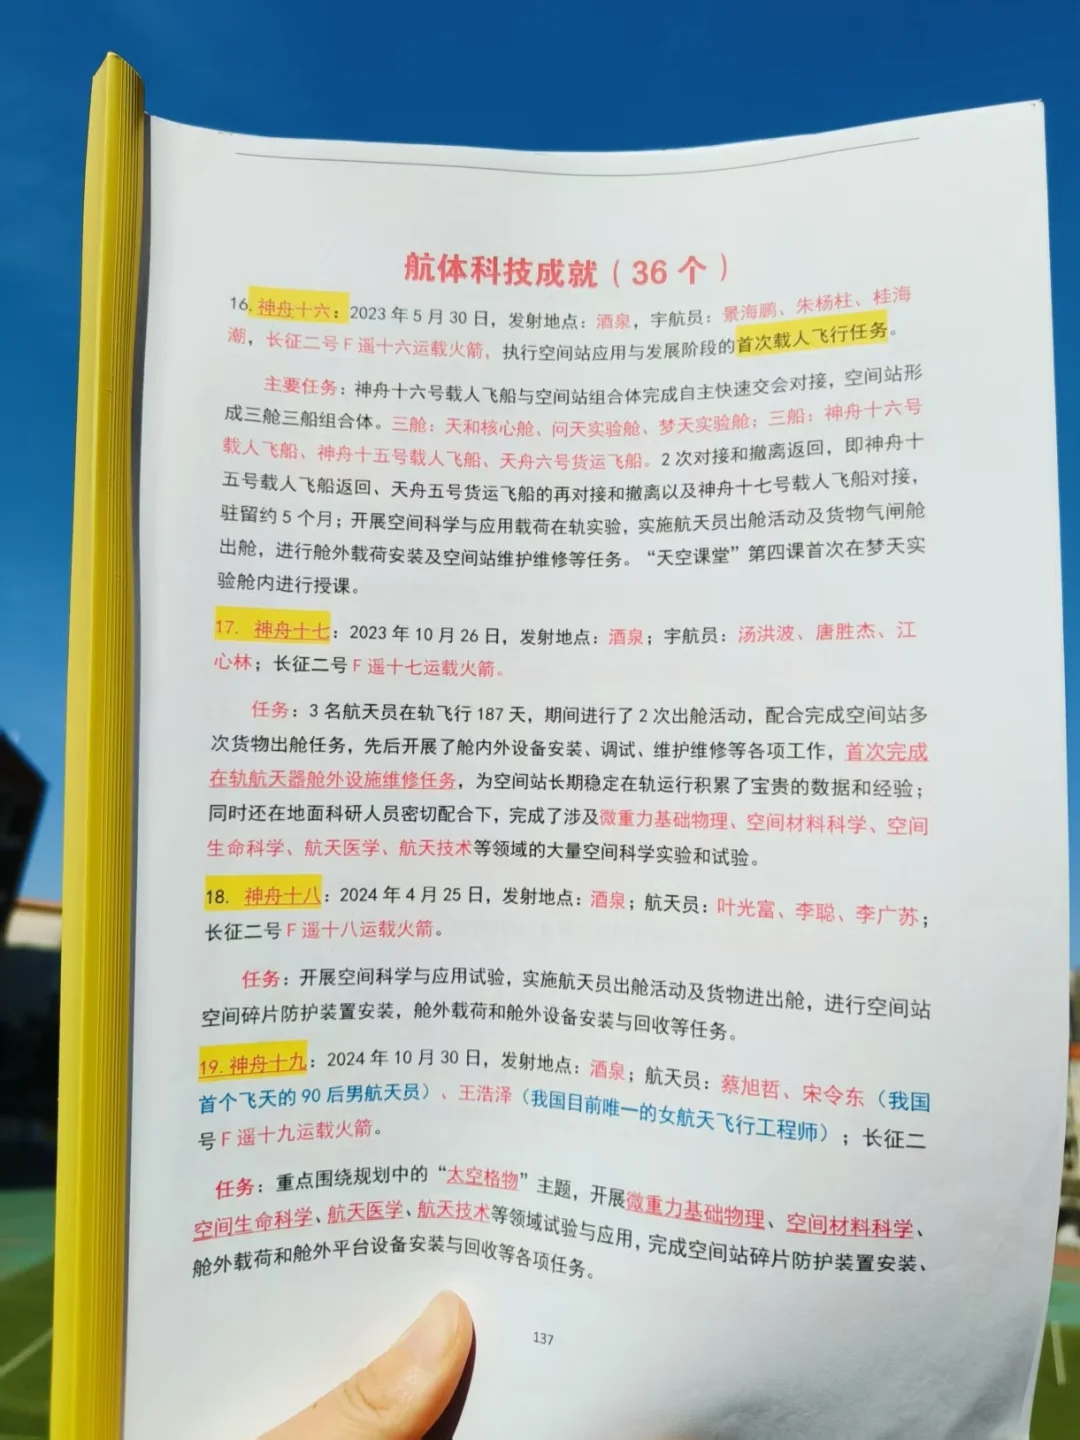 航体科技成就（36 个）
16.神舟十六：2023 年 5 月 30 日，发射地点：酒泉，宇航员：景海鹏、朱杨柱、桂海
潮，长征二号 F 遥十六运载火箭，执行空间站应用与发展阶段的首次载人飞行任务。
主要任务：神舟十六号载人飞船与空间站组合体完成自主快速交会对接，空间站形
成三舱三船组合体。三舱：天和核心舱、问天实验舱、梦天实验舱；三船：神舟十六号
载人飞船、神舟十五号载人飞船、天舟六号货运飞船。2 次对接和撤离返回，即神舟十
五号载人飞船返回、天舟五号货运飞船的再对接和撤离以及神舟十七号载人飞船对接，
驻留约 5 个月；开展空间科学与应用载荷在轨实验，实施航天员出舱活动及货物气闸舱
出舱，进行舱外载荷安装及空间站维护维修等任务。“天空课堂”第四课首次在梦天实
验舱内进行授课。
17. 神舟十七：2023 年 10 月 26 日，发射地点：酒泉；宇航员：汤洪波、唐胜杰、江
心林；长征二号 F 遥十七运载火箭。
任务：3 名航天员在轨飞行 187 天，期间进行了 2 次出舱活动，配合完成空间站多
次货物出舱任务，先后开展了舱内外设备安装、调试、维护维修等各项工作，首次完成
在轨航天器舱外设施维修任务，为空间站长期稳定在轨运行积累了宝贵的数据和经验；
同时还在地面科研人员密切配合下，完成了涉及微重力基础物理、空间材料科学、空间
生命科学、航天医学、航天技术等领域的大量空间科学实验和试验。
18. 神舟十八：2024 年 4 月 25 日，发射地点：酒泉；航天员：叶光富、李聪、李广苏；
长征二号 F 遥十八运载火箭。
任务：开展空间科学与应用试验，实施航天员出舱活动及货物进出舱，进行空间站
空间碎片防护装置安装，舱外载荷和舱外设备安装与回收等任务。
19.神舟十九：2024 年 10 月 30 日，发射地点：酒泉；航天员：蔡旭哲、宋令东（我国
首个飞天的 90 后男航天员）、王浩泽（我国目前唯一的女航天飞行工程师）；长征二
号 F 遥十九运载火箭。
任务：重点围绕规划中的“太空格物”主题，开展微重力基础物理、空间材料科学、
空间生命科学、航天医学、航天技术等领域试验与应用，完成空间站碎片防护装置安装、
舱外载荷和舱外平台设备安装与回收等各项任务。
137